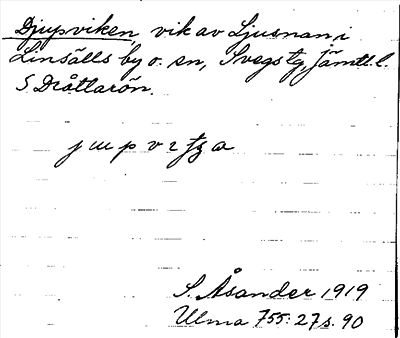 Djupviken, vik av Ljusnan i
Linsälls by o. sn, Svegs tg, Jämtl. l.
S Dråttarön.
S. Åsander 1919
Ulma 755: 27 s. 90